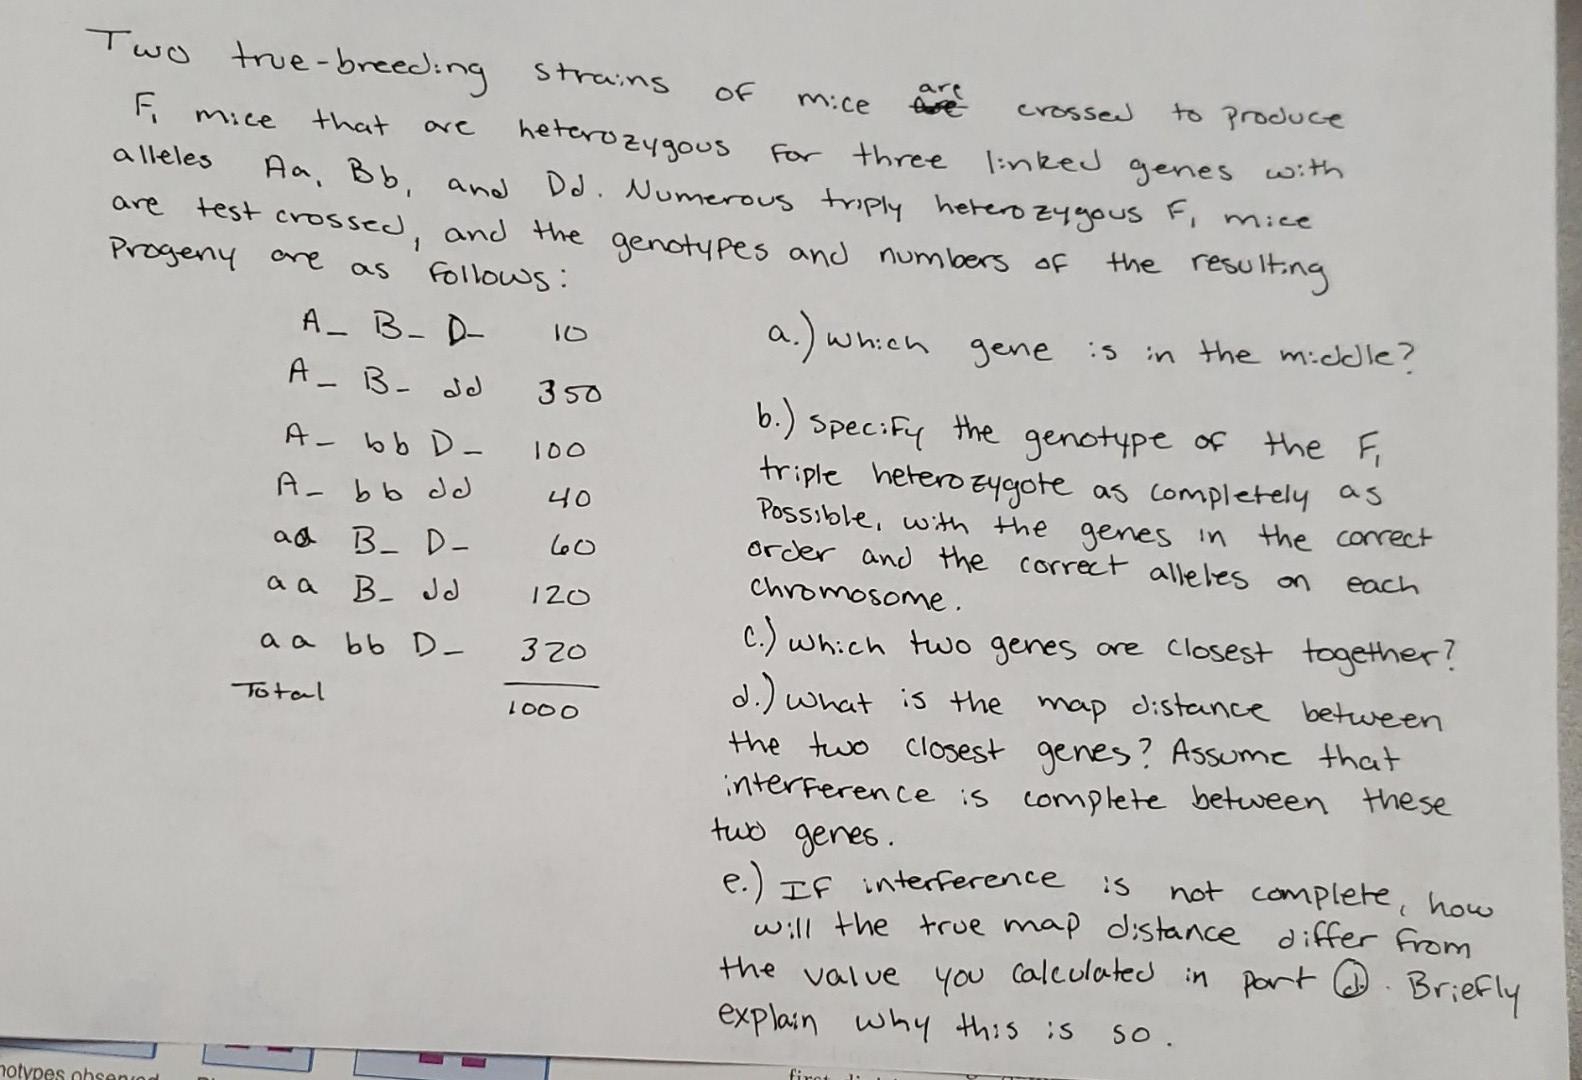 Two true-breeding strains of mice are crossed to produce
F1 mice that are heterozygous for three linked genes with
alleles Aa, Bb, and Dd. Numerous triply heterozygous F1 mice
are test crossed, and the genotypes and numbers of the resulting
Progeny are as follows:
A_ B_ D_ 10
A_ B_ dd 350
A_ bb D_ 100
A_ bb dd 40
aa B_ D_ 60
aa B_ dd 120
aa bb D_ 320
Total 1000
a.) which gene is in the middle?
b.) specify the genotype of the F1
triple heterozygote as completely as
Possible, with the genes in the correct
order and the correct alleles on each
chromosome.
c.) which two genes are closest together?
d.) what is the map distance between
the two closest genes? Assume that
interference is complete between these
two genes.
e.) If interference is not complete, how
will the true map distance differ from
the value you calculated in part d. Briefly
explain why this is so.